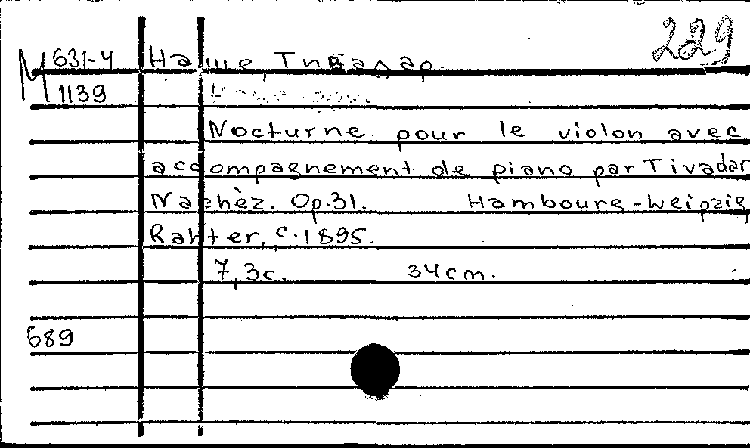 229
М 631-4 Наше, Тивадар
1139
Nocturne pour le violon avec
accompagnement de piano par Tivadar
Nachèz. Op.31. Hambourg-Leipzig,
Rahter, c.1895.
7,3с. 34cm.
689